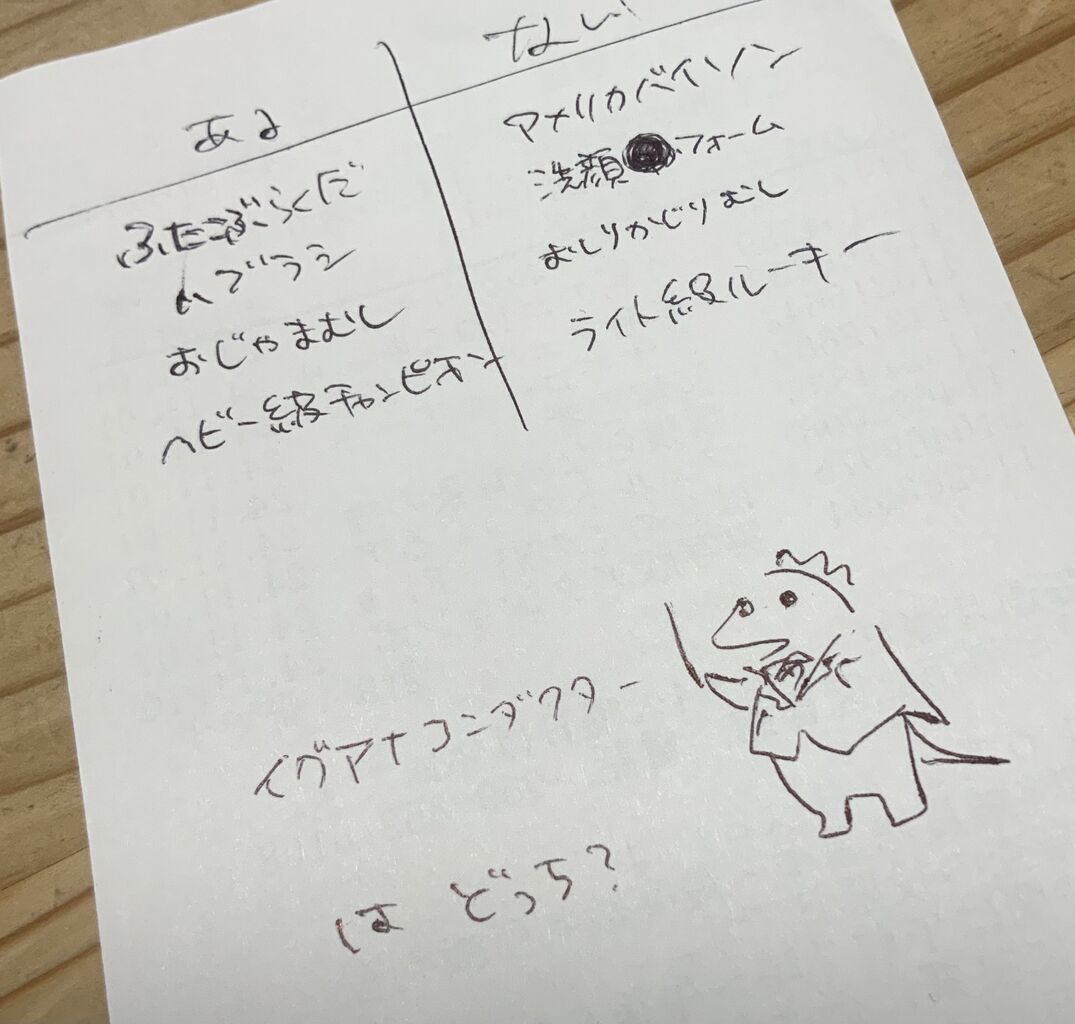 ある
ない
ふたこぶらくだ
アメリカバイソン
ハブラシ
洗顔フォーム
おじゃまむし
おしりかじりむし
ヘビー級チャンピオン
ライト級ルーキー
イグアナコンダクター
は どっち?